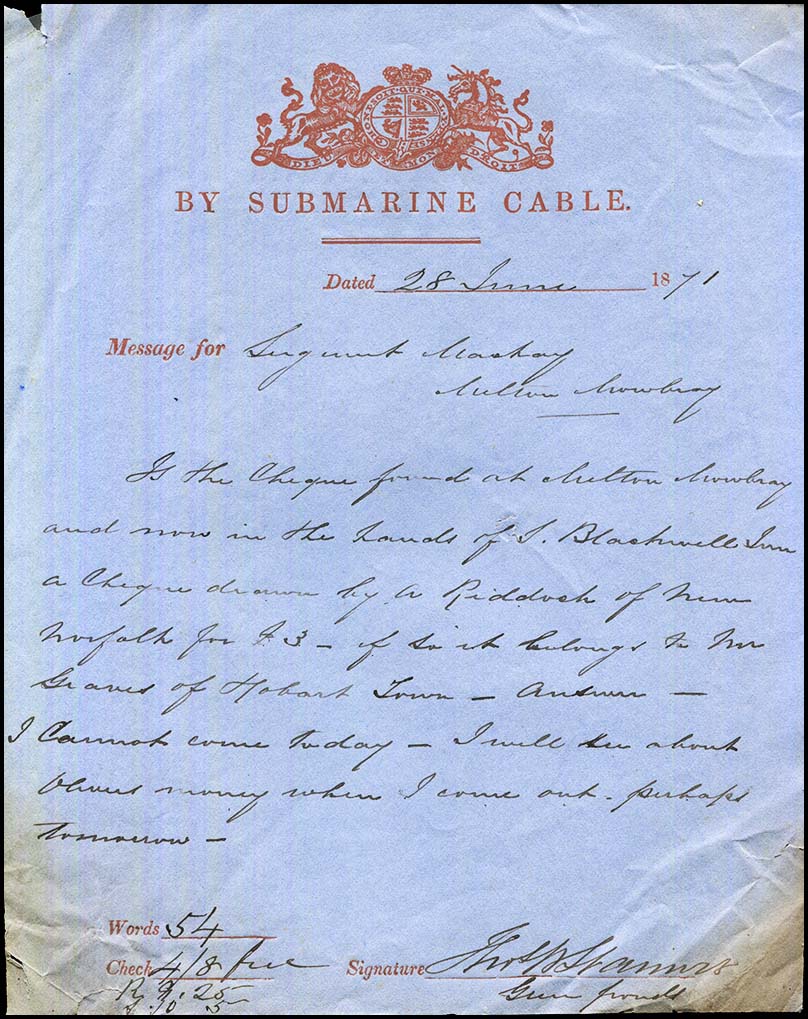 HONI SOIT QUI MAL Y PENSE
DIEU ET MON DROIT
BY SUBMARINE CABLE.
Dated 28 June 1871
Message for Sergeant Mackay
Melton Mowbray
Is the Cheque found at Melton Mowbray
and now in the hands of S. Blackwell Inn
a Cheque drawn by A Riddock of New
Norfolk for £3 – if so it belongs to Mr
Graves of Hobart Town – Answer –
I Cannot come today – I will see about
Olivers money when I come out – perhaps
tomorrow –
Words 54
Check 4/8 free
Signature Thos